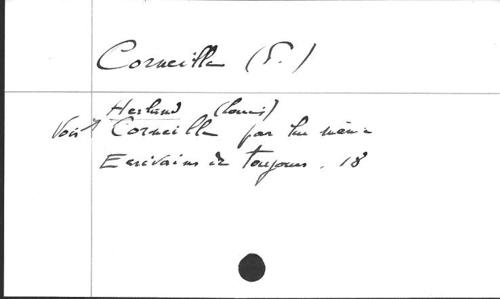 Corneille (P.)
Herland (Louis)
Voir Corneille par lui même
Ecrivains de toujours. 18